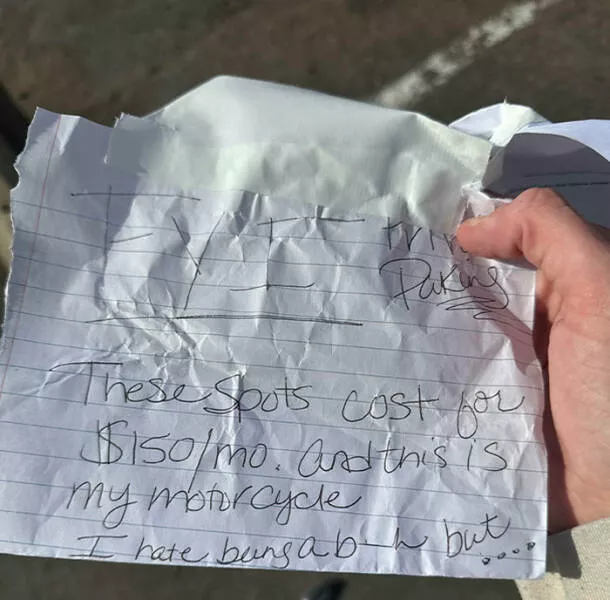 FYI
Paking
These spots cost for
$150/mo. and this is
my motorcycle
I hate being a b-h but....